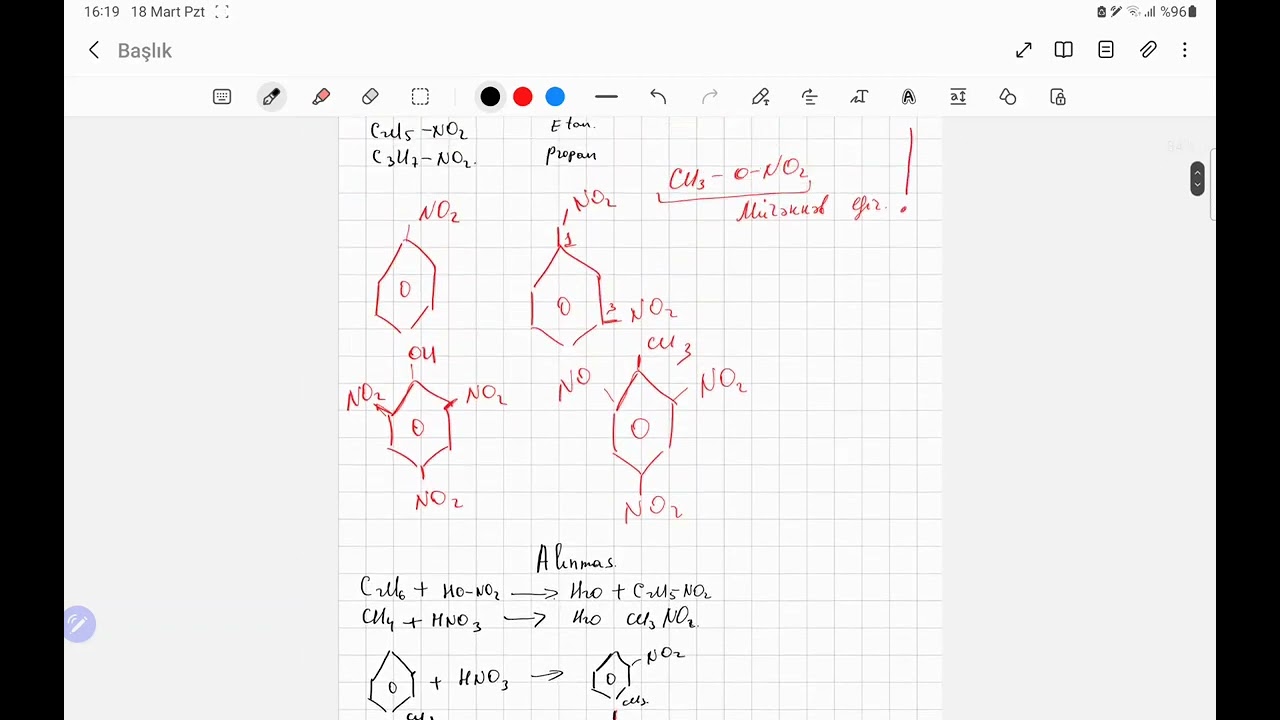 16:19 18 Mart Pzt %96
Başlık
C2H5-NO2 Etan.
C3H7-NO2. propan
CH3-O-NO2
Mürəkkəb efir. !
NO2 NO2
1
3 NO2
OH CH3
NO2 NO2 NO NO2
NO2 NO2
Alınması.
C2H6 + HO-NO2 → H2O + C2H5NO2
CH4 + HNO3 → H2O CH3NO2.
+ HNO3 → NO2
CH3 CH3.